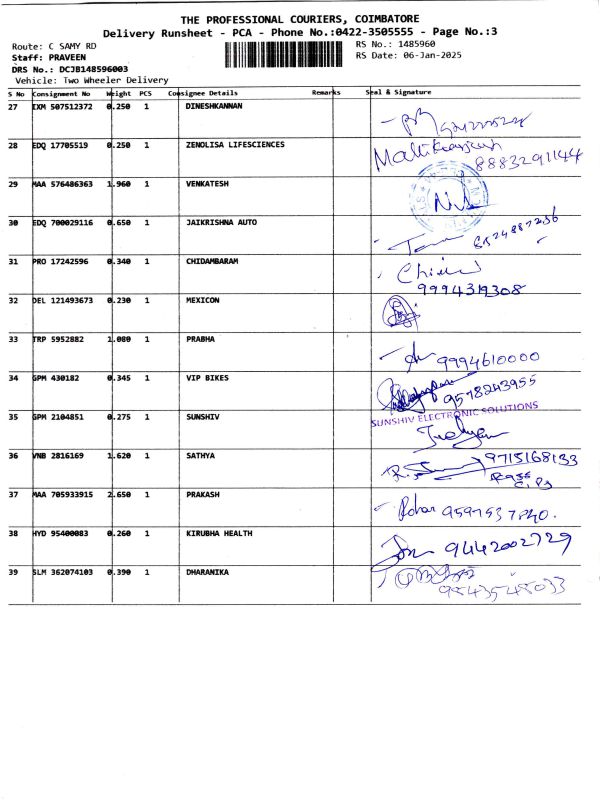 THE PROFESSIONAL COURIERS, COIMBATORE
Delivery Runsheet - PCA - Phone No.:0422-3505555 - Page No.:3
Route: C SAMY RD RS No.: 1485960
Staff: PRAVEEN RS Date: 06-Jan-2025
DRS No.: DCJB148596003
Vehicle: Two Wheeler Delivery
S No Consignment No Weight PCS Consignee Details Remarks Seal & Signature
27 IXM 507512372 0.250 1 DINESHKANNAN
28 EDQ 17705519 0.250 1 ZENOLISA LIFESCIENCES
8883291144
29 MAA 576486363 1.960 1 VENKATESH
30 EDQ 700029116 0.650 1 JAIKRISHNA AUTO
31 PRO 17242596 0.340 1 CHIDAMBARAM
9994319308
32 DEL 121493673 0.230 1 MEXICON
33 TRP 5952882 1.080 1 PRABHA
9994610000
34 GPM 430182 0.345 1 VIP BIKES
9578243955
35 GPM 2104851 0.275 1 SUNSHIV
SUNSHIV ELECTRONIC SOLUTIONS
36 VNB 2816169 1.620 1 SATHYA
9715168133
37 MAA 705933915 2.650 1 PRAKASH
38 HYD 95400083 0.260 1 KIRUBHA HEALTH
9442002729
39 SLM 362074103 0.390 1 DHARANIKA